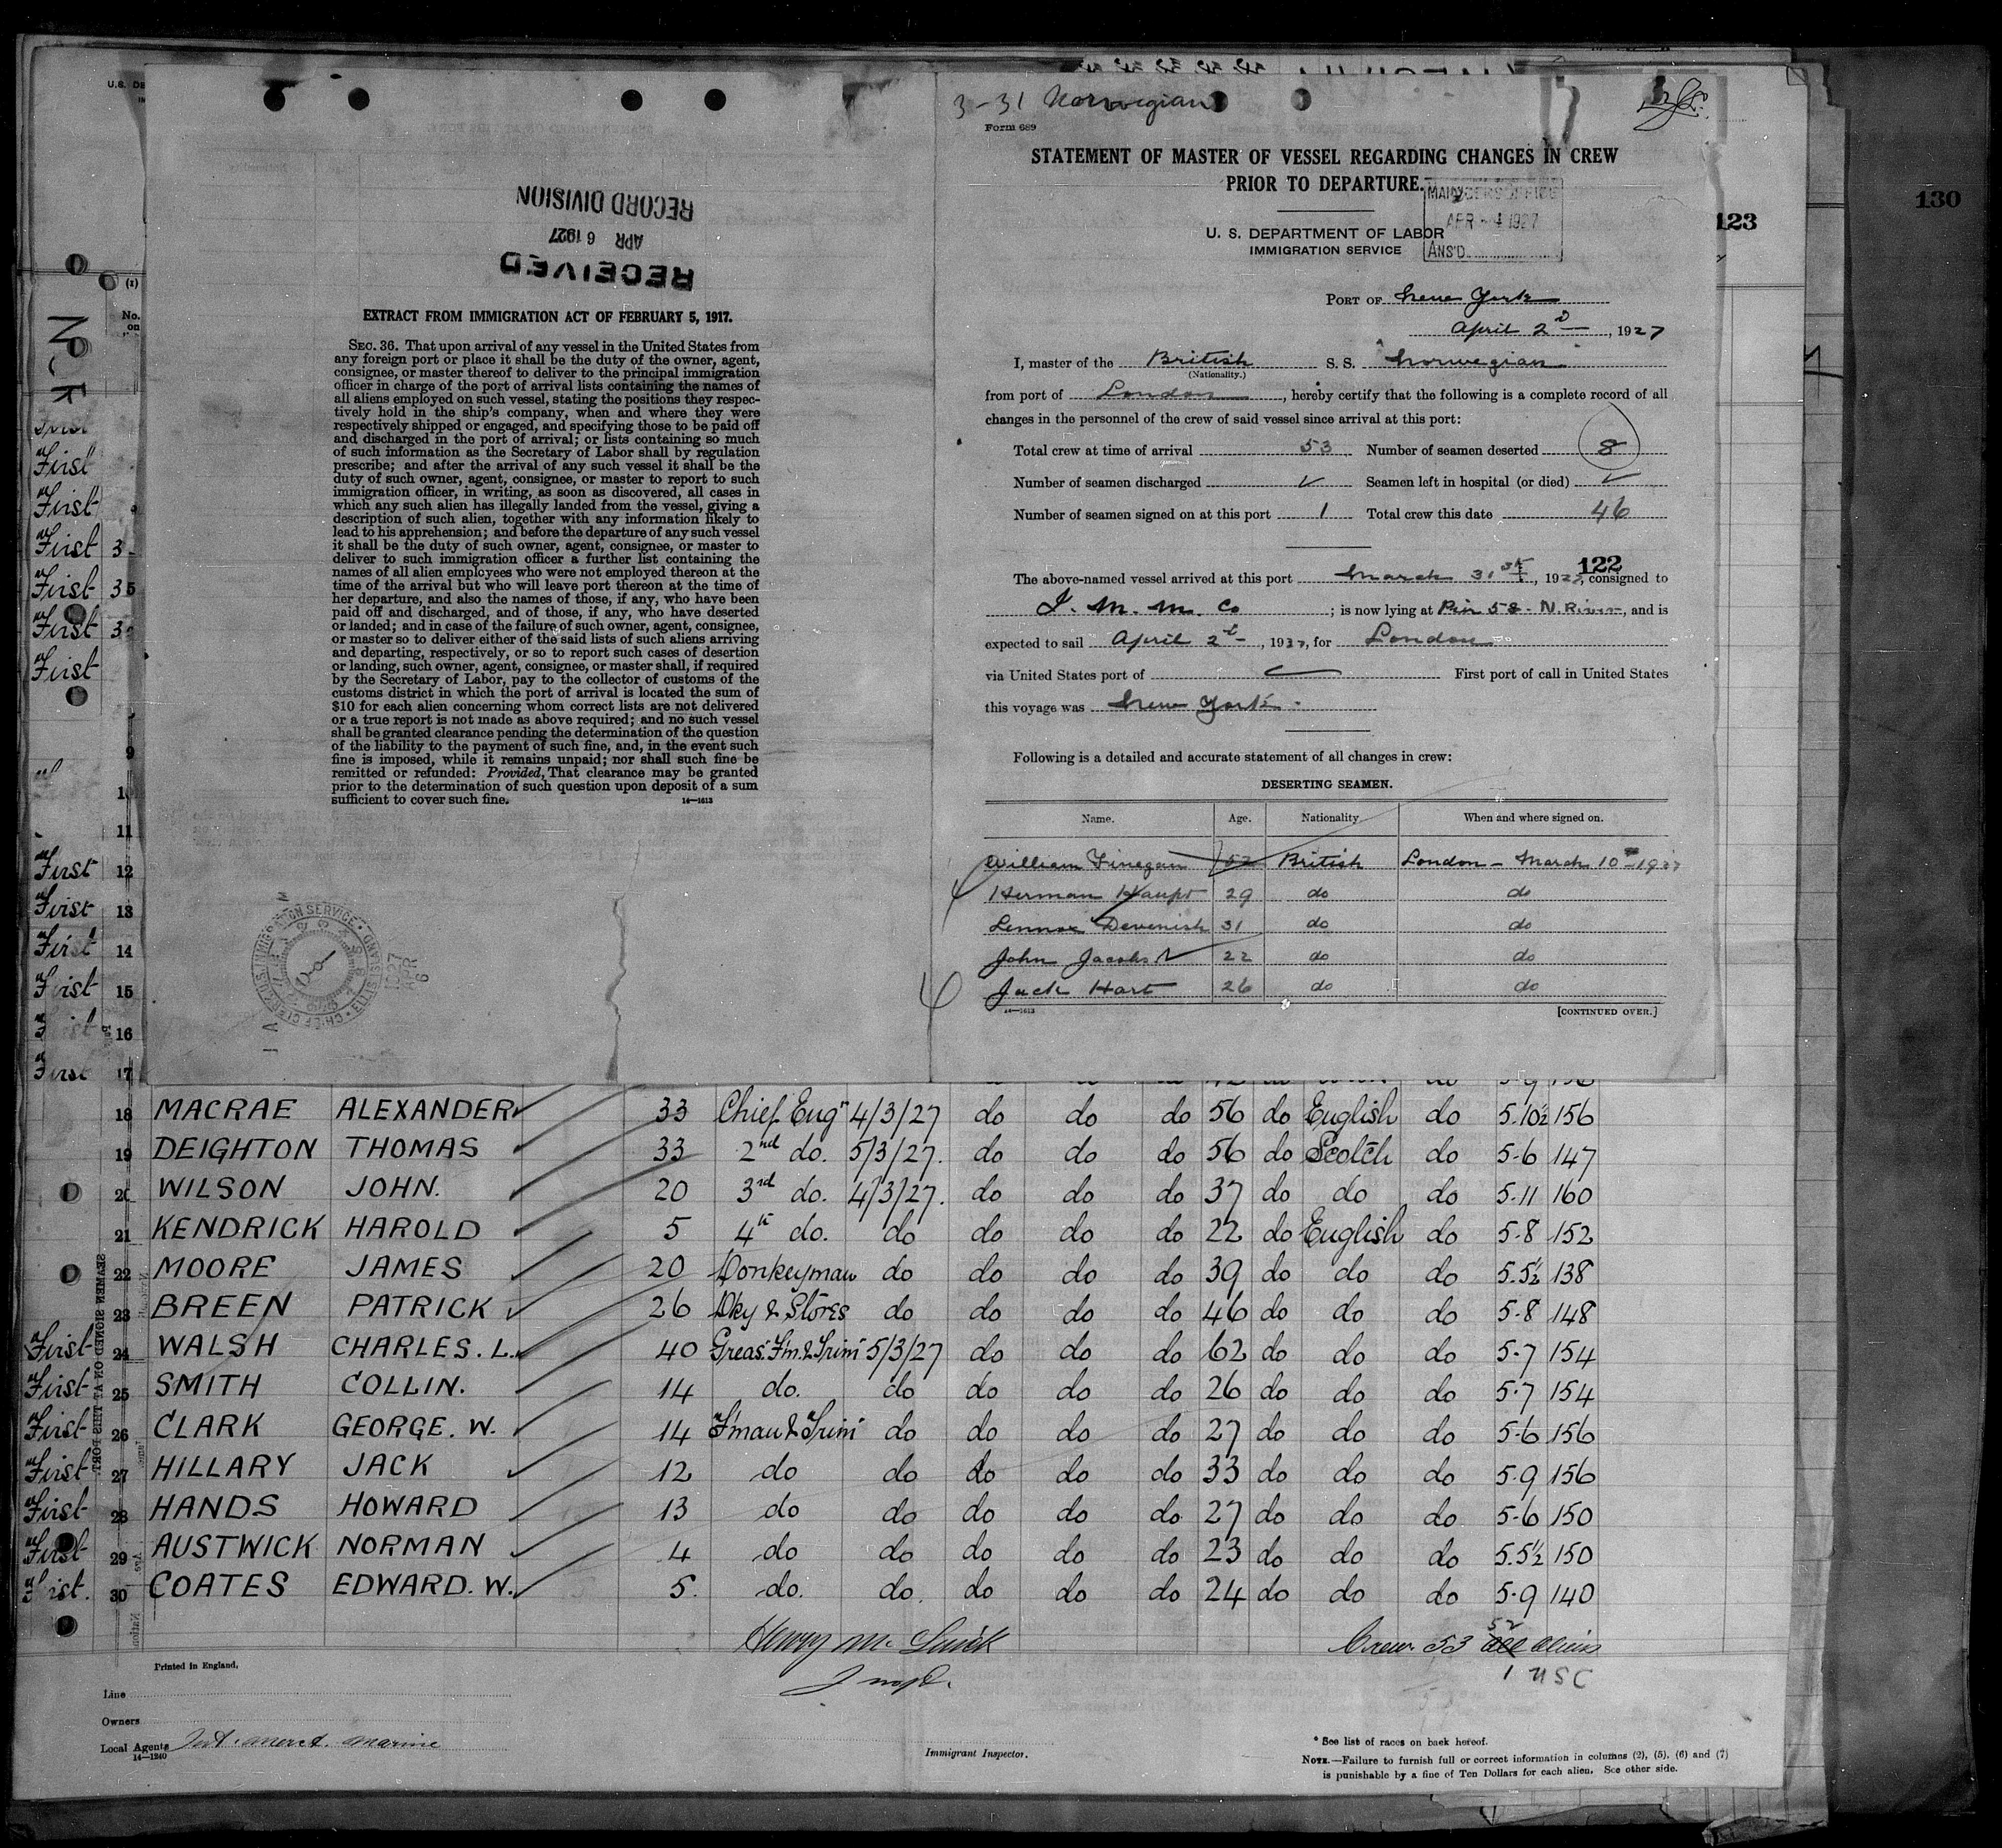 130
123
3-31 Norwegian
Form 689
STATEMENT OF MASTER OF VESSEL REGARDING CHANGES IN CREW
PRIOR TO DEPARTURE.
APR - 4 1927
ANS'D
U. S. DEPARTMENT OF LABOR
IMMIGRATION SERVICE
PORT OF New York
April 2d, 1927
I, master of the British S. S. "Norwegian"
(Nationality.)
from port of London, hereby certify that the following is a complete record of all
changes in the personnel of the crew of said vessel since arrival at this port:
Total crew at time of arrival 53 Number of seamen deserted 8
Number of seamen discharged ✓ Seamen left in hospital (or died) ✓
Number of seamen signed on at this port 1 Total crew this date 46
122
The above-named vessel arrived at this port March 31st, 1927, consigned to
I. M. M. Co; is now lying at Pier 58 - N. River, and is
expected to sail April 2d, 1927, for London
via United States port of First port of call in United States
this voyage was New York.
Following is a detailed and accurate statement of all changes in crew:
DESERTING SEAMEN.
Name. Age. Nationality When and where signed on.
William Finegan 52 British London - March 10th - 1927
Herman Haupt 29 do do
Lennox Devenish 31 do do
John Jacobs 22 do do
Jack Hart 26 do do
14—1613 [CONTINUED OVER.]
RECORD DIVISION
APR 6 1927
RECEIVED
EXTRACT FROM IMMIGRATION ACT OF FEBRUARY 5, 1917.
SEC. 36. That upon arrival of any vessel in the United States from
any foreign port or place it shall be the duty of the owner, agent,
consignee, or master thereof to deliver to the principal immigration
officer in charge of the port of arrival lists containing the names of
all aliens employed on such vessel, stating the positions they respec-
tively hold in the ship's company, when and where they were
respectively shipped or engaged, and specifying those to be paid off
and discharged in the port of arrival; or lists containing so much
of such information as the Secretary of Labor shall by regulation
prescribe; and after the arrival of any such vessel it shall be the
duty of such owner, agent, consignee, or master to report to such
immigration officer, in writing, as soon as discovered, all cases in
which any such alien has illegally landed from the vessel, giving a
description of such alien, together with any information likely to
lead to his apprehension; and before the departure of any such vessel
it shall be the duty of such owner, agent, consignee, or master to
deliver to such immigration officer a further list containing the
names of all alien employees who were not employed thereon at the
time of the arrival but who will leave port thereon at the time of
her departure, and also the names of those, if any, who have been
paid off and discharged, and of those, if any, who have deserted
or landed; and in case of the failure of such owner, agent, consignee,
or master so to deliver either of the said lists of such aliens arriving
and departing, respectively, or so to report such cases of desertion
or landing, such owner, agent, consignee, or master shall, if required
by the Secretary of Labor, pay to the collector of customs of the
customs district in which the port of arrival is located the sum of
$10 for each alien concerning whom correct lists are not delivered
or a true report is not made as above required; and no such vessel
shall be granted clearance pending the determination of the question
of the liability to the payment of such fine, and, in the event such
fine is imposed, while it remains unpaid; nor shall such fine be
remitted or refunded: Provided, That clearance may be granted
prior to the determination of such question upon deposit of a sum
sufficient to cover such fine. 14—1613
1927 APR 6
First
First
First
First
First
First
First 12
First 13
First 14
First 15
16
First 17
18 MACRAE ALEXANDER 33 Chief Engr 4/3/27 do do do 56 do English do 5.10½ 156
19 DEIGHTON THOMAS 33 2nd do. 5/3/27. do do do 56 do Scotch do 5-6 147
20 WILSON JOHN. 20 3rd do. 4/3/27. do do do 37 do do do 5.11 160
21 KENDRICK HAROLD 5 4th do. do do do do 22 do English do 5.8 152
22 MOORE JAMES 20 Donkeyman do do do do 39 do do do 5.5½ 138
23 BREEN PATRICK 26 Dky & Stores do do do do 46 do do do 5-8 148
First 24 WALSH CHARLES. L. 40 Greas. F'm. & Trim 5/3/27 do do do 62 do do do 5.7 154
First 25 SMITH COLLIN. 14 do. do do do do 26 do do do 5.7 154
First 26 CLARK GEORGE. W. 14 F'man & Trim do do do do 27 do do do 5-6 156
First 27 HILLARY JACK 12 do do do do do 33 do do do 5.9 156
First 28 HANDS HOWARD 13 do do do do do 27 do do do 5-6 150
First 29 AUSTWICK NORMAN 4 do do do do do 23 do do do 5.5½ 150
First. 30 COATES EDWARD. W. 5. do. do. do do do 24 do do do 5.9 140
SEAMEN SIGNED ON AT THIS PORT
52
Crew 53 all aliens
1 USC
Printed in England.
Line
Owners
Local Agents Int. Merct. Marine
14—1240
Immigrant Inspector.
* See list of races on back hereof.
NOTE.—Failure to furnish full or correct information in columns (2), (5), (6) and (7)
is punishable by a fine of Ten Dollars for each alien. See other side.